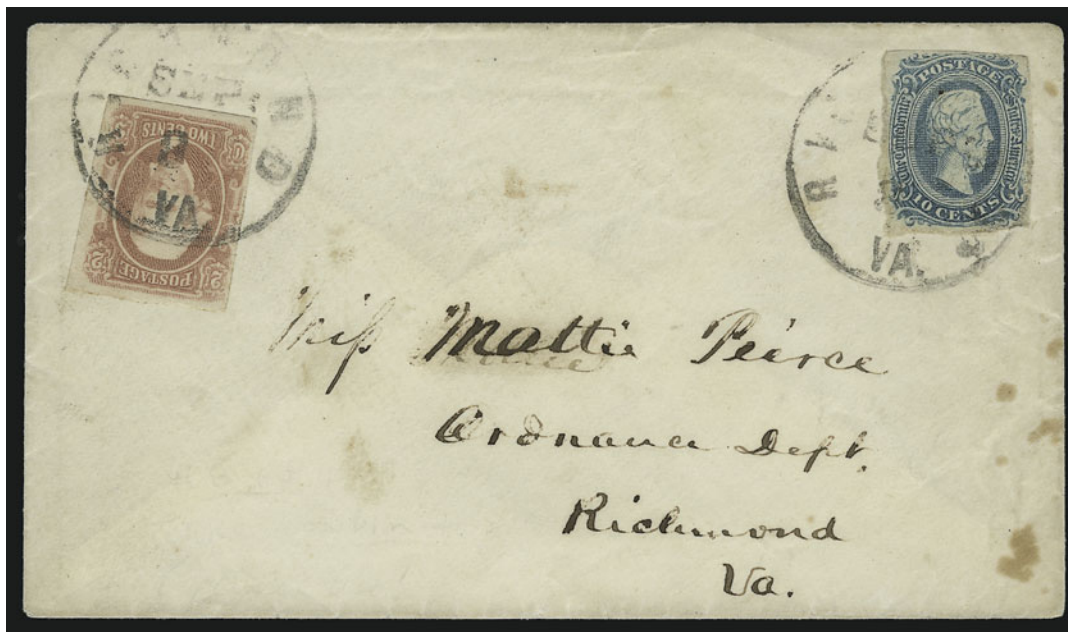 RICHMOND
SEP
8
VA.
TWO CENTS
2 POSTAGE 2
VA.
POSTAGE
The Confederate States of America
10 CENTS
Miss Mattie Peirce
Ordnance Dept.
Richmond
Va.